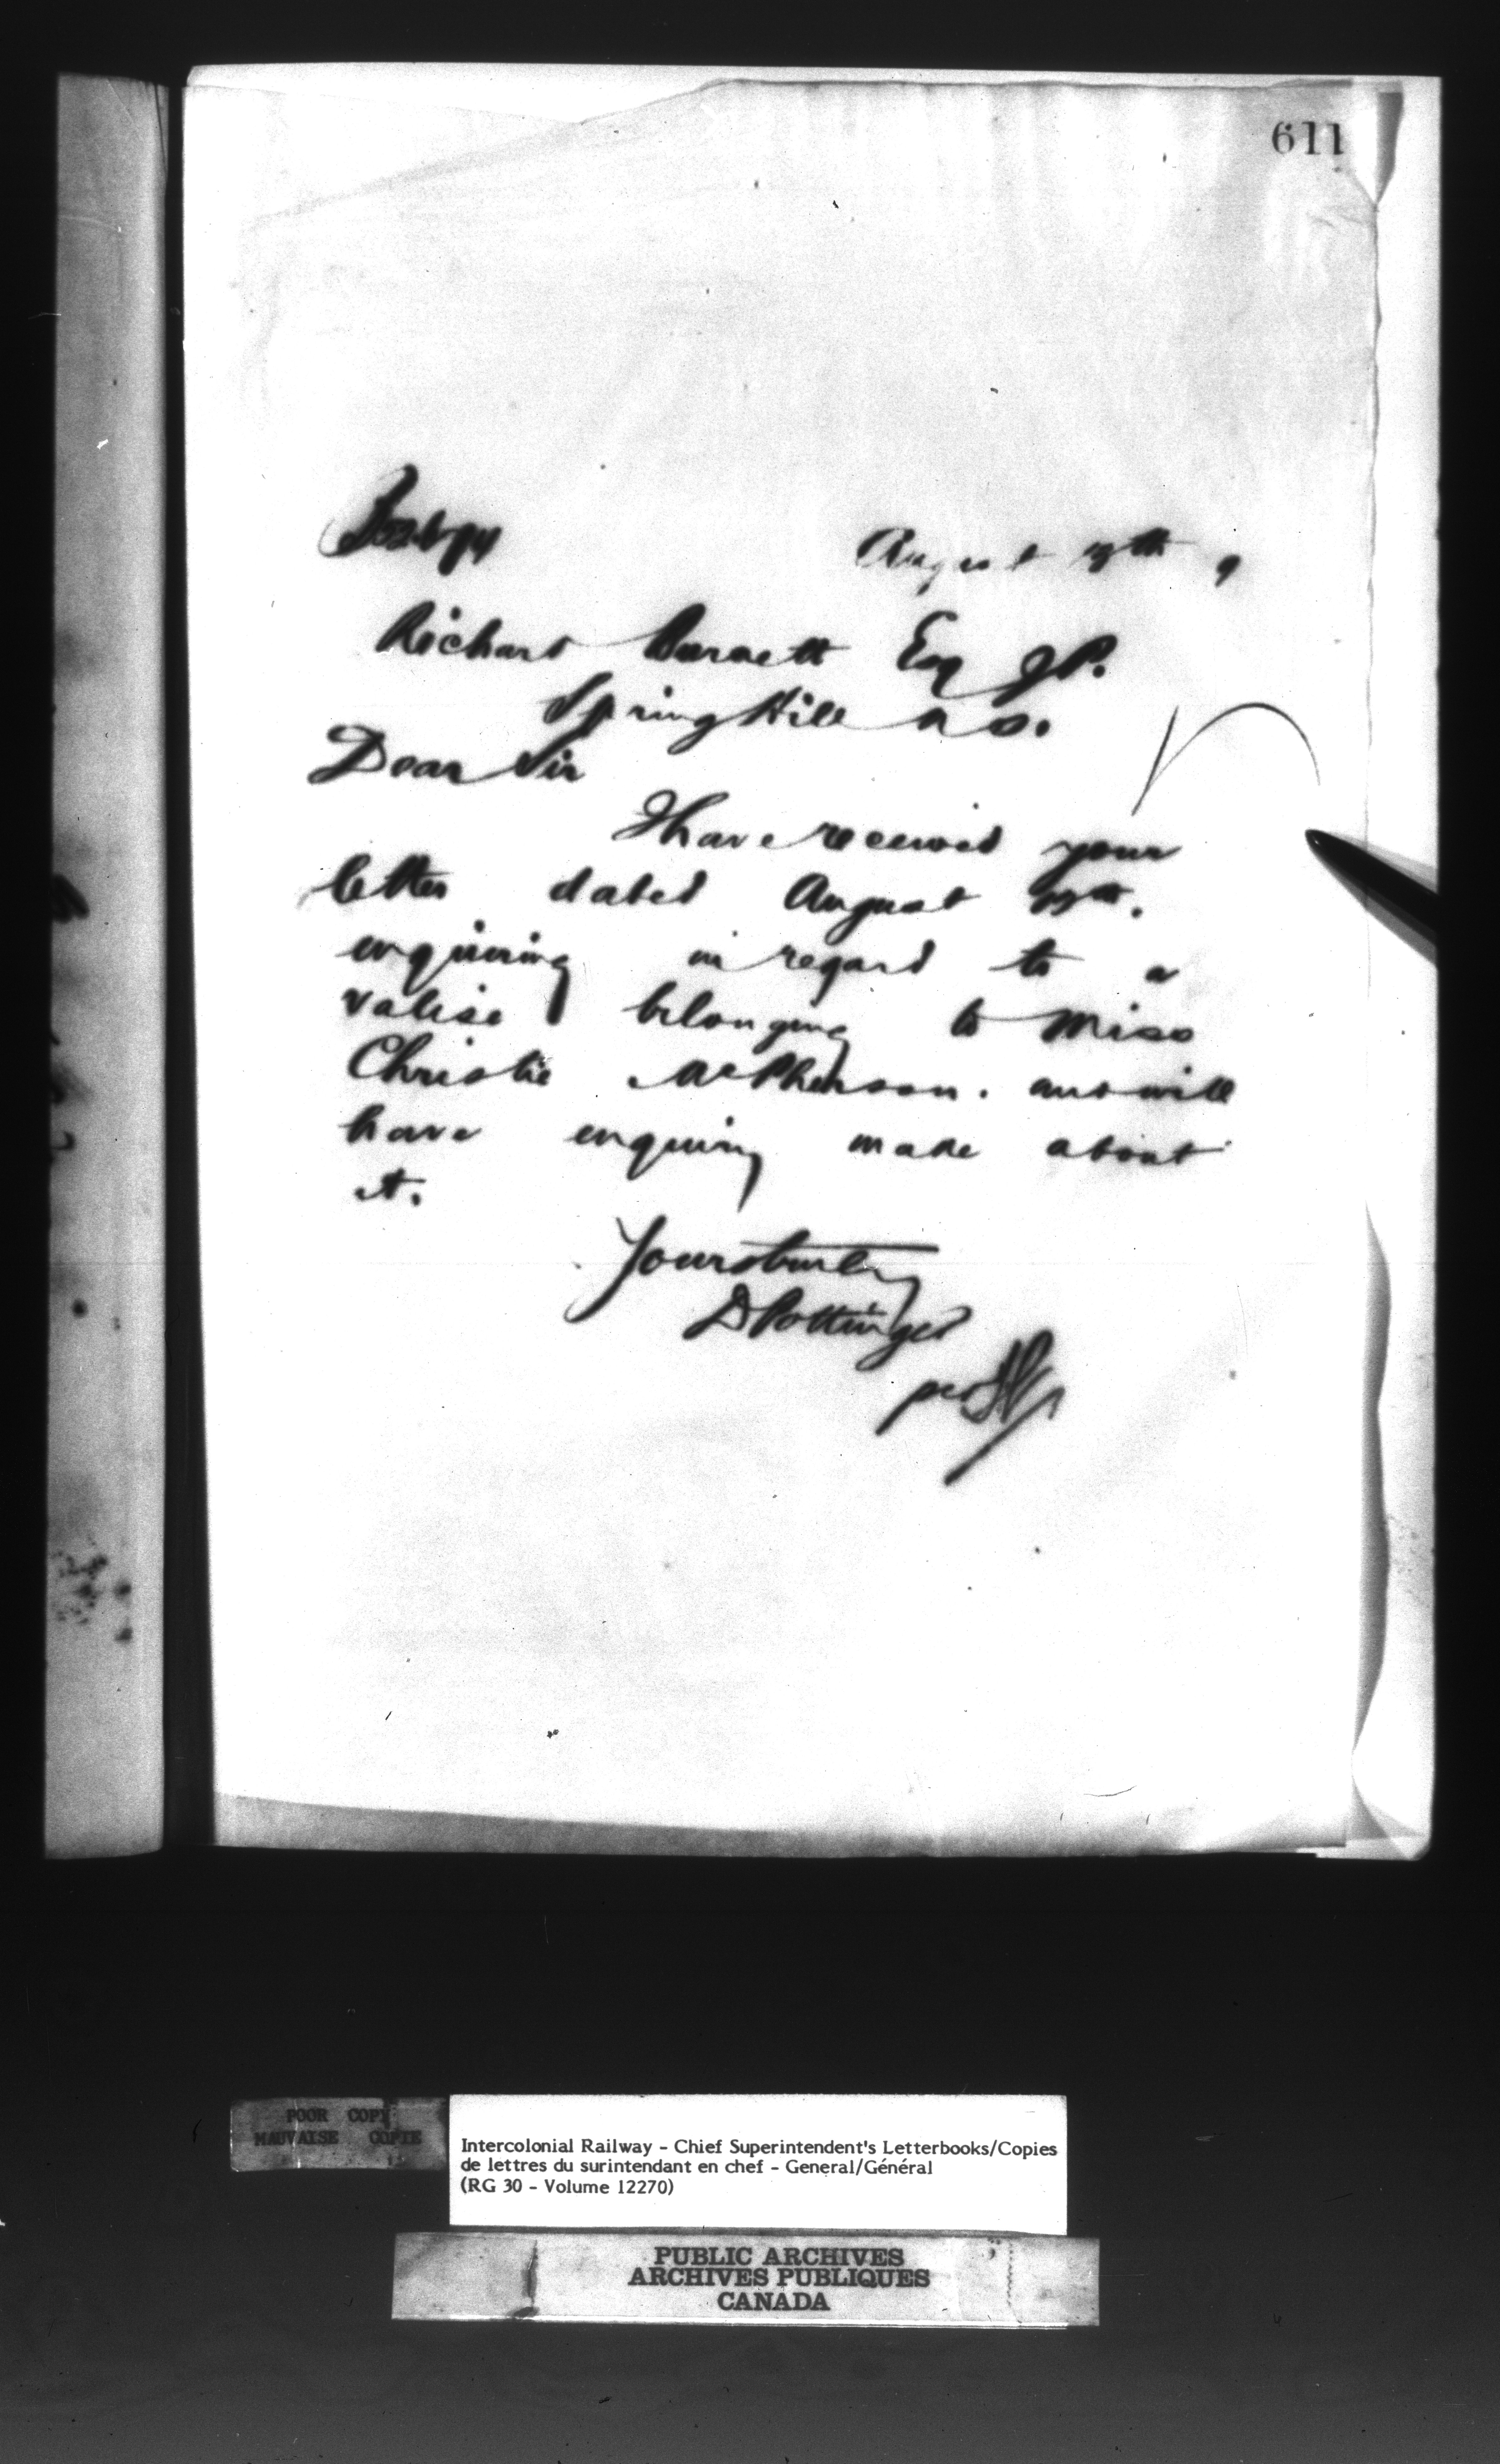 611
August 19th 9
Richard Burnett Esq JP.
Spring Hill N S.
Dear Sir
I have received your
letter dated August
enquiring in regard to a
valise belonging to Miss
Christie McPherson. and will
have enquiry made about
it.
Yours truly
D Pottinger
per
POOR COPY
MAUVAISE COPIE
Intercolonial Railway - Chief Superintendent's Letterbooks/Copies
de lettres du surintendant en chef - General/Général
(RG 30 - Volume 12270)
PUBLIC ARCHIVES
ARCHIVES PUBLIQUES
CANADA